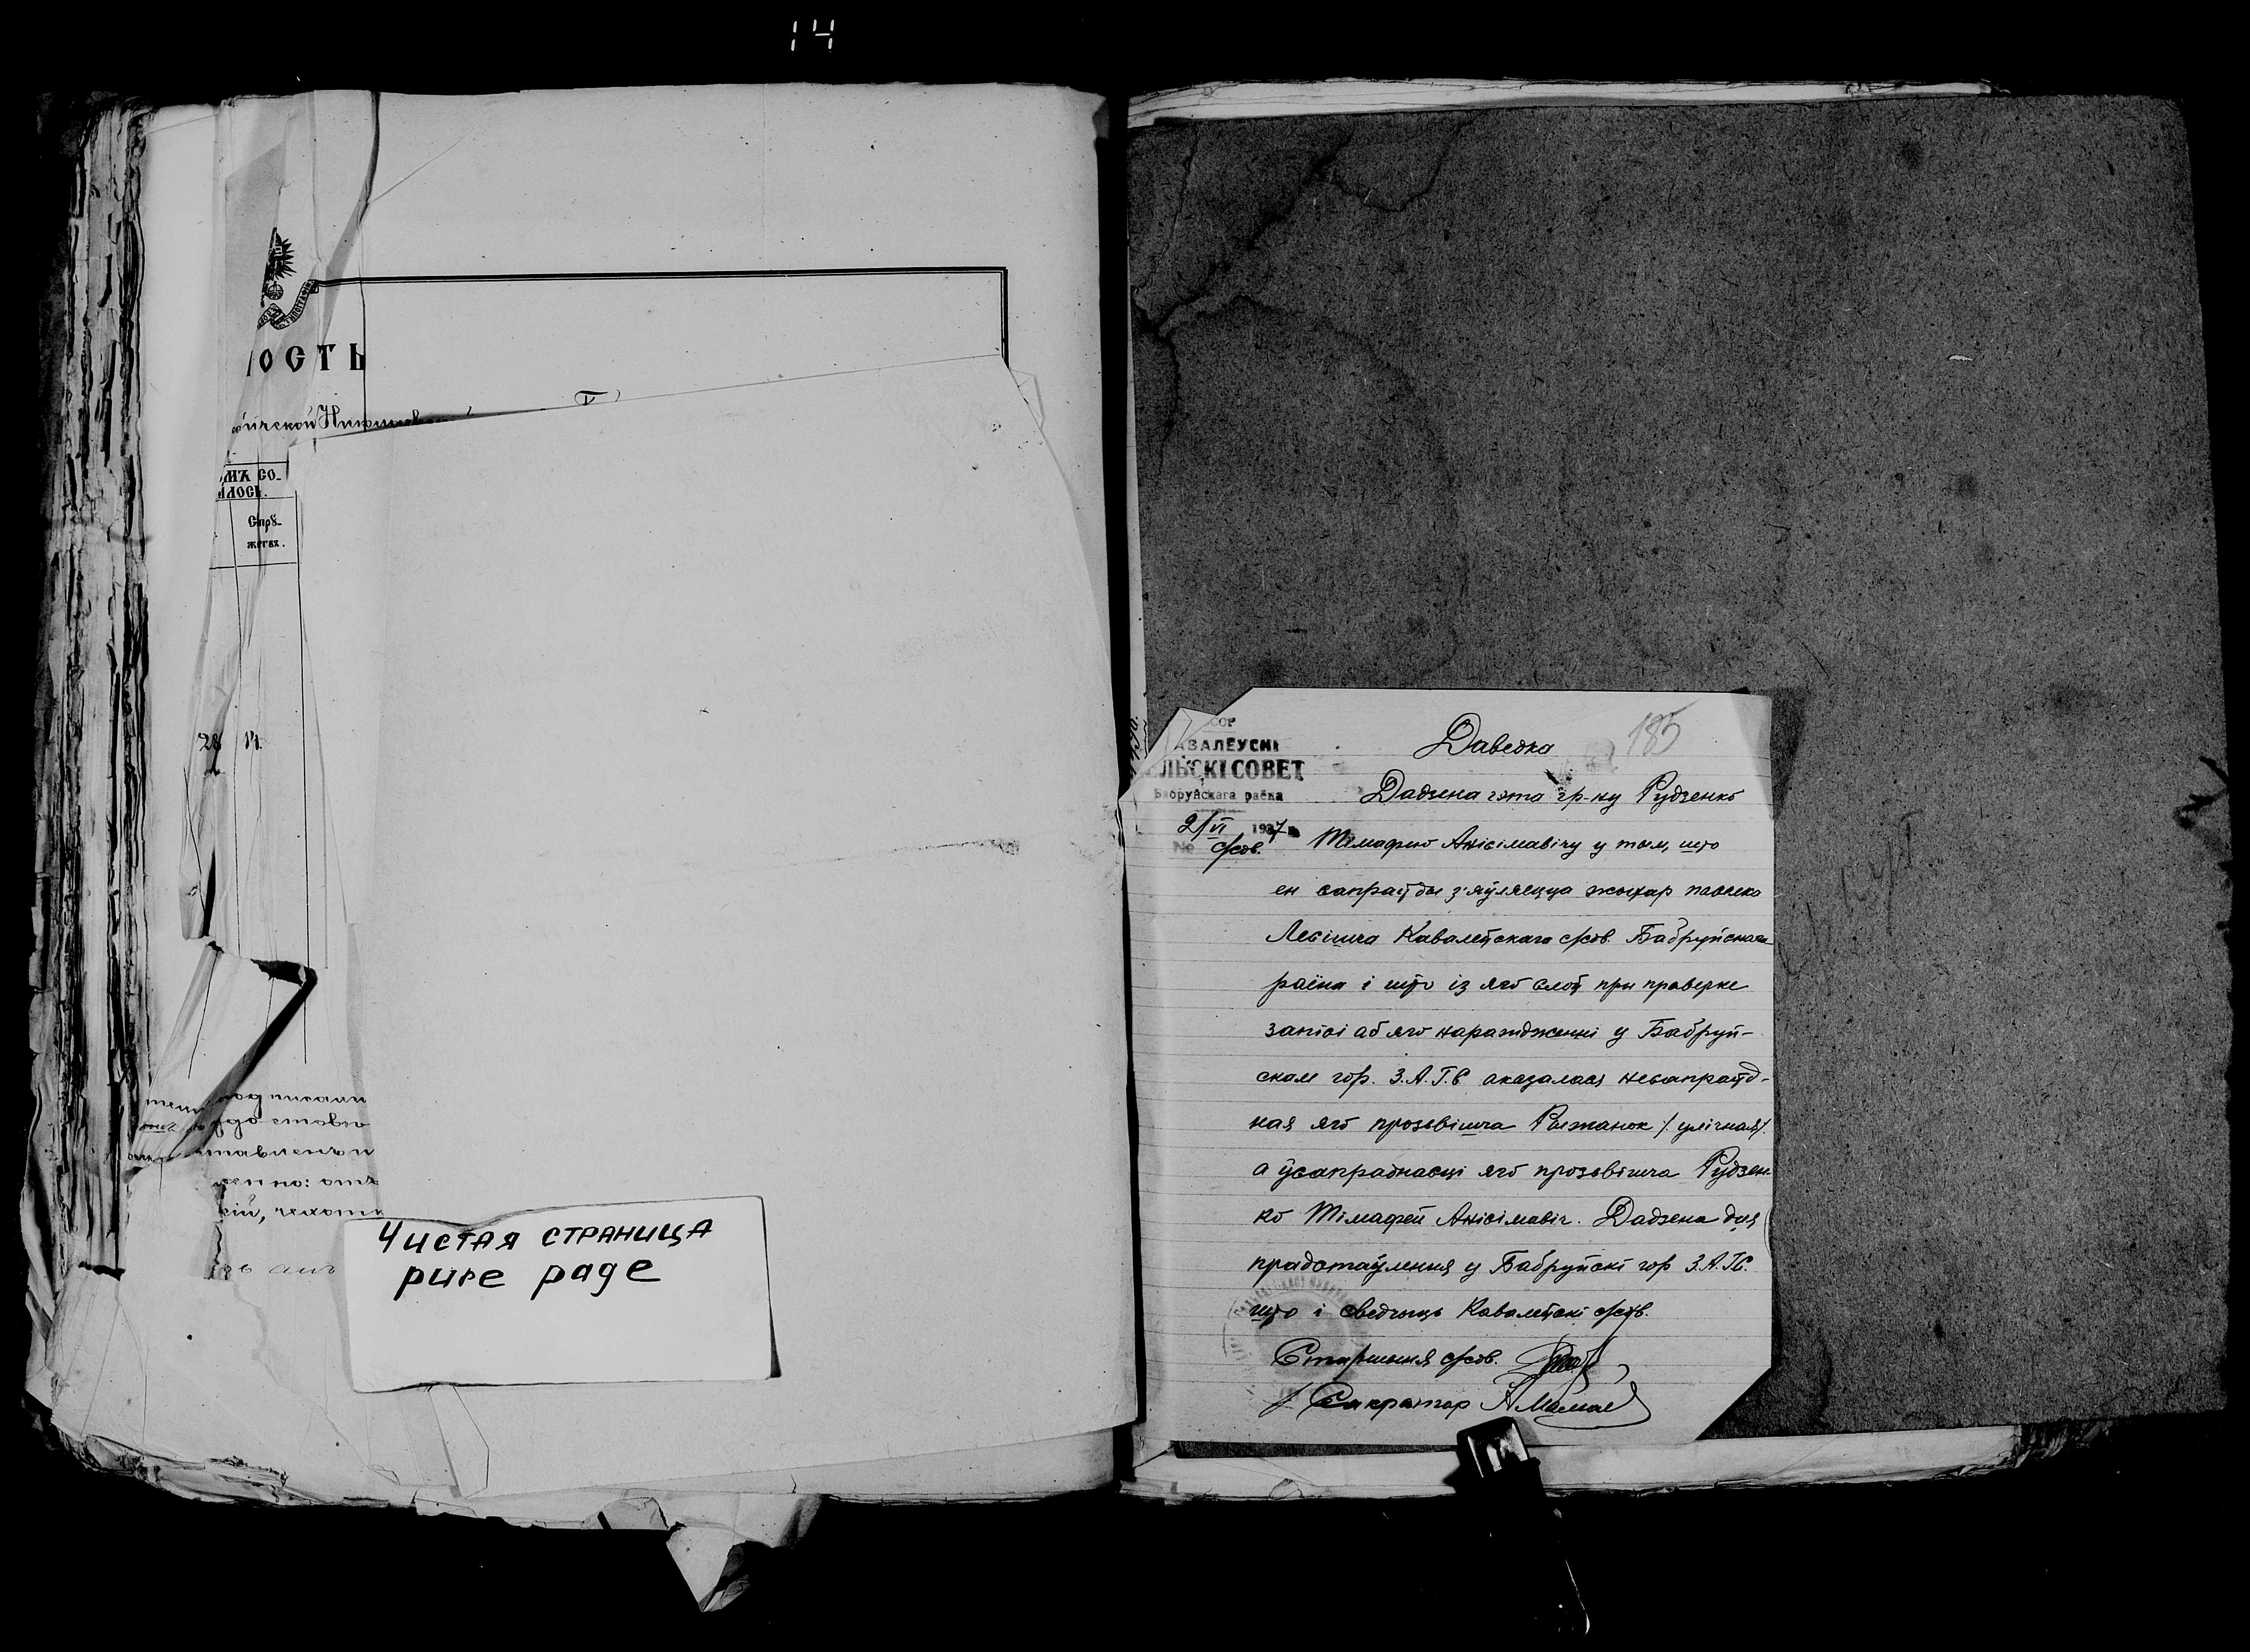 14
ОСТЬ
МЪ СО-
ЛОСЬ.
Спрꙋ-
жетвх.
28
14
Чистая страница
pure page
185
ССР
АВАЛЕУСКІ
ЕЛЬСКІ СОВЕТ
Бабруйскага раёна
2/VI 1937 г.
№ с/сов.
Даведка
Дадзена гэта гр-ну Рудзенко
Тімафею Анісімавічу у том, што
ен сапраўды з'яўляецца жыхар
Кавалеўскаго с/сов. Бабруйскаго
раёна і што із яго слоў пры праверке
запісі аб яго нараждженні у Бабруй-
скам гор. З.А.Г.С аказалася несапраўд-
ная яго прозвішча Рыжанок /улічная/.
а ўсапраднасці яго прозвішча Рудзен-
ко Тімафей Анісімавіч. Дадзена для
прадстаўления у Бабруйскі гор З.А.ГС.
што і сведчыць Кавалеўскі с/сов.
Старшыня с/сов.
Сакратар